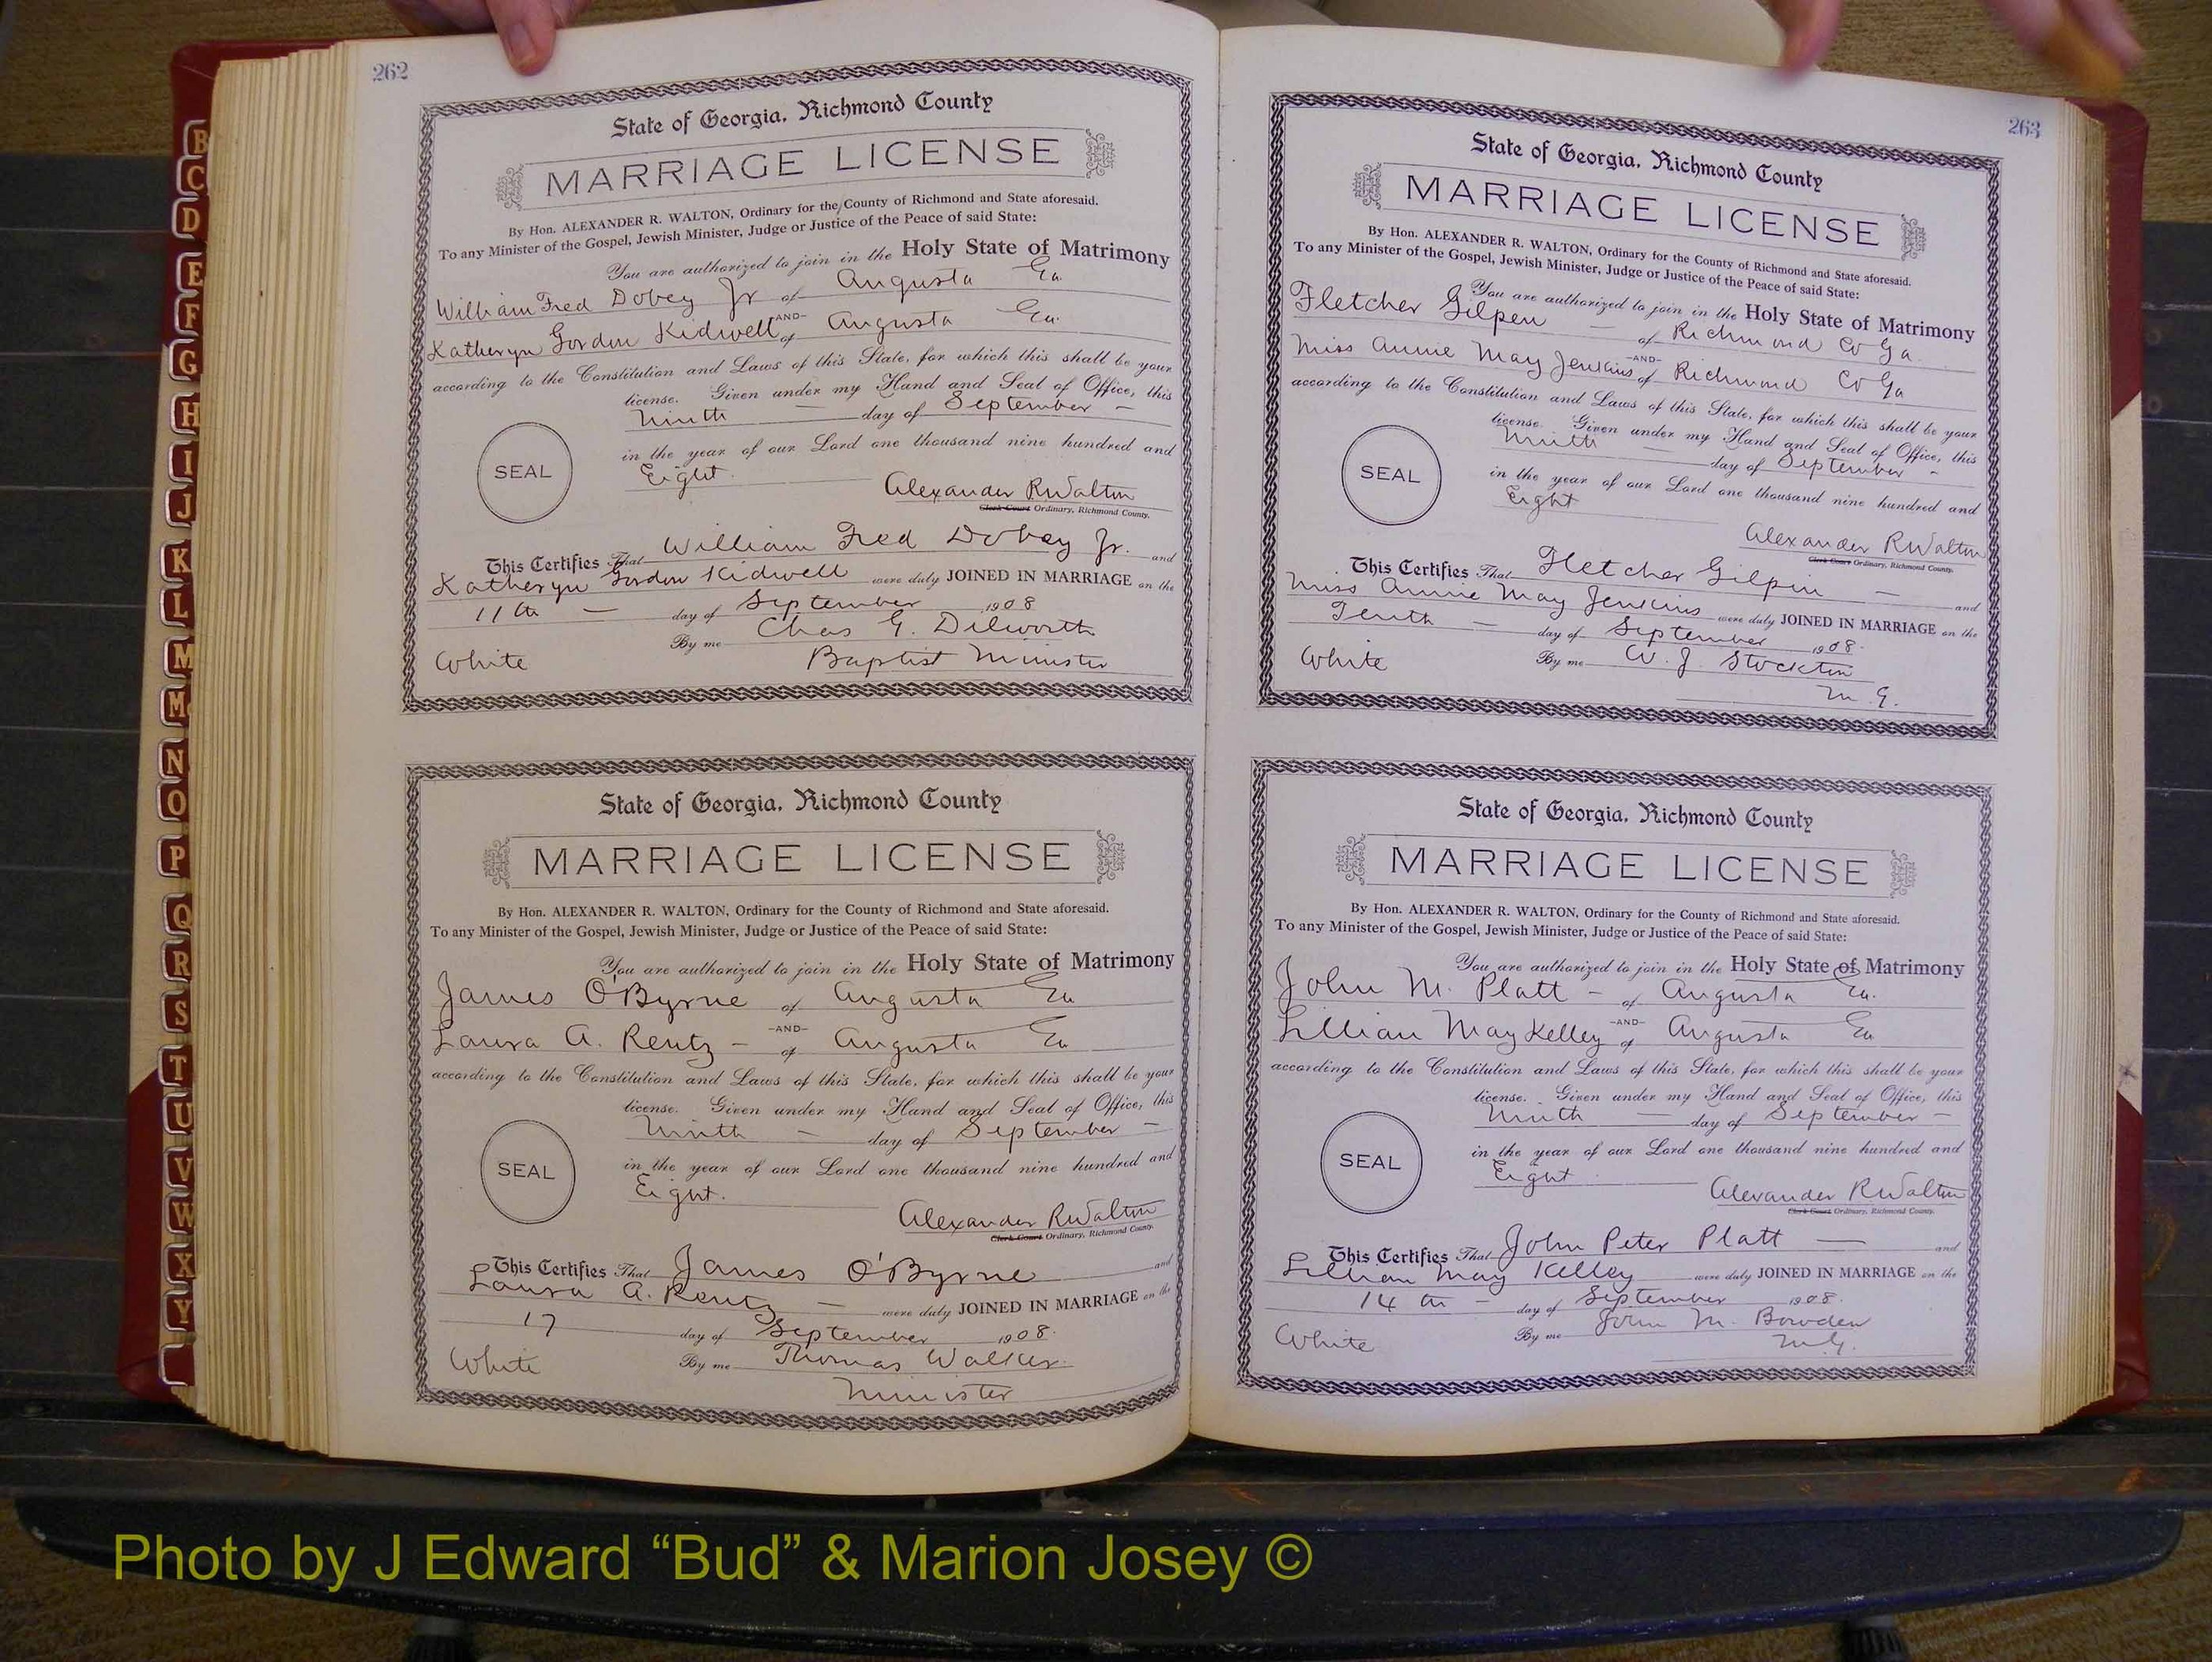 262
State of Georgia, Richmond County
MARRIAGE LICENSE
By Hon. ALEXANDER R. WALTON, Ordinary for the County of Richmond and State aforesaid.
To any Minister of the Gospel, Jewish Minister, Judge or Justice of the Peace of said State:
You are authorized to join in the Holy State of Matrimony
William Fred Dobey Jr of Augusta Ga.
-AND-
Katheryn Gordon Kidwell of Augusta Ga.
according to the Constitution and Laws of this State, for which this shall be your
license. Given under my Hand and Seal of Office, this
Ninth — day of September —
in the year of our Lord one thousand nine hundred and
SEAL
Eight.
Alexander R Walton
Clerk Court Ordinary, Richmond County.
This Certifies That William Fred Dobey Jr. and
Katheryn Gordon Kidwell were duly JOINED IN MARRIAGE on the
11th — day of September 1908
By me Chas G. Dilworth
White Baptist Minister
State of Georgia, Richmond County
MARRIAGE LICENSE
By Hon. ALEXANDER R. WALTON, Ordinary for the County of Richmond and State aforesaid.
To any Minister of the Gospel, Jewish Minister, Judge or Justice of the Peace of said State:
You are authorized to join in the Holy State of Matrimony
James O'Byrne of Augusta Ga
-AND-
Laura A. Rentz — of Augusta Ga
according to the Constitution and Laws of this State, for which this shall be your
license. Given under my Hand and Seal of Office, this
Ninth — day of September —
in the year of our Lord one thousand nine hundred and
SEAL
Eight.
Alexander R Walton
Clerk Court Ordinary, Richmond County.
This Certifies That James O'Byrne and
Laura A. Rentz — were duly JOINED IN MARRIAGE on the
17 day of September 1908.
White By me Thomas Walker
Minister
263
State of Georgia, Richmond County
MARRIAGE LICENSE
By Hon. ALEXANDER R. WALTON, Ordinary for the County of Richmond and State aforesaid.
To any Minister of the Gospel, Jewish Minister, Judge or Justice of the Peace of said State:
You are authorized to join in the Holy State of Matrimony
Fletcher Gilpen — of Richmond Co Ga.
-AND-
Miss Annie May Jenkins of Richmond Co Ga
according to the Constitution and Laws of this State, for which this shall be your
license. Given under my Hand and Seal of Office, this
Ninth — day of September -
in the year of our Lord one thousand nine hundred and
SEAL
Eight
Alexander R Walton
Clerk Court Ordinary, Richmond County.
This Certifies That Fletcher Gilpin — and
Miss Annie May Jenkins were duly JOINED IN MARRIAGE on the
Tenth — day of September 1908.
White By me W. J. Stockton
M. G.
State of Georgia, Richmond County
MARRIAGE LICENSE
By Hon. ALEXANDER R. WALTON, Ordinary for the County of Richmond and State aforesaid.
To any Minister of the Gospel, Jewish Minister, Judge or Justice of the Peace of said State:
You are authorized to join in the Holy State of Matrimony
John M. Platt — of Augusta Ga.
-AND-
Lillian May Kelley of Augusta Ga
according to the Constitution and Laws of this State, for which this shall be your
license. Given under my Hand and Seal of Office, this
Ninth — day of September —
in the year of our Lord one thousand nine hundred and
SEAL
Eight
Alexander R Walton
Clerk Court Ordinary, Richmond County.
This Certifies That John Peter Platt — and
Lillian May Kelley were duly JOINED IN MARRIAGE on the
14th — day of September 1908.
White By me John M. Bowden
M.G.
B
C
D
E
F
G
H
I
J
K
L
M
Mc
N
O
P
Q
R
S
T
U
V
W
X
Y
Photo by J Edward “Bud” & Marion Josey ©